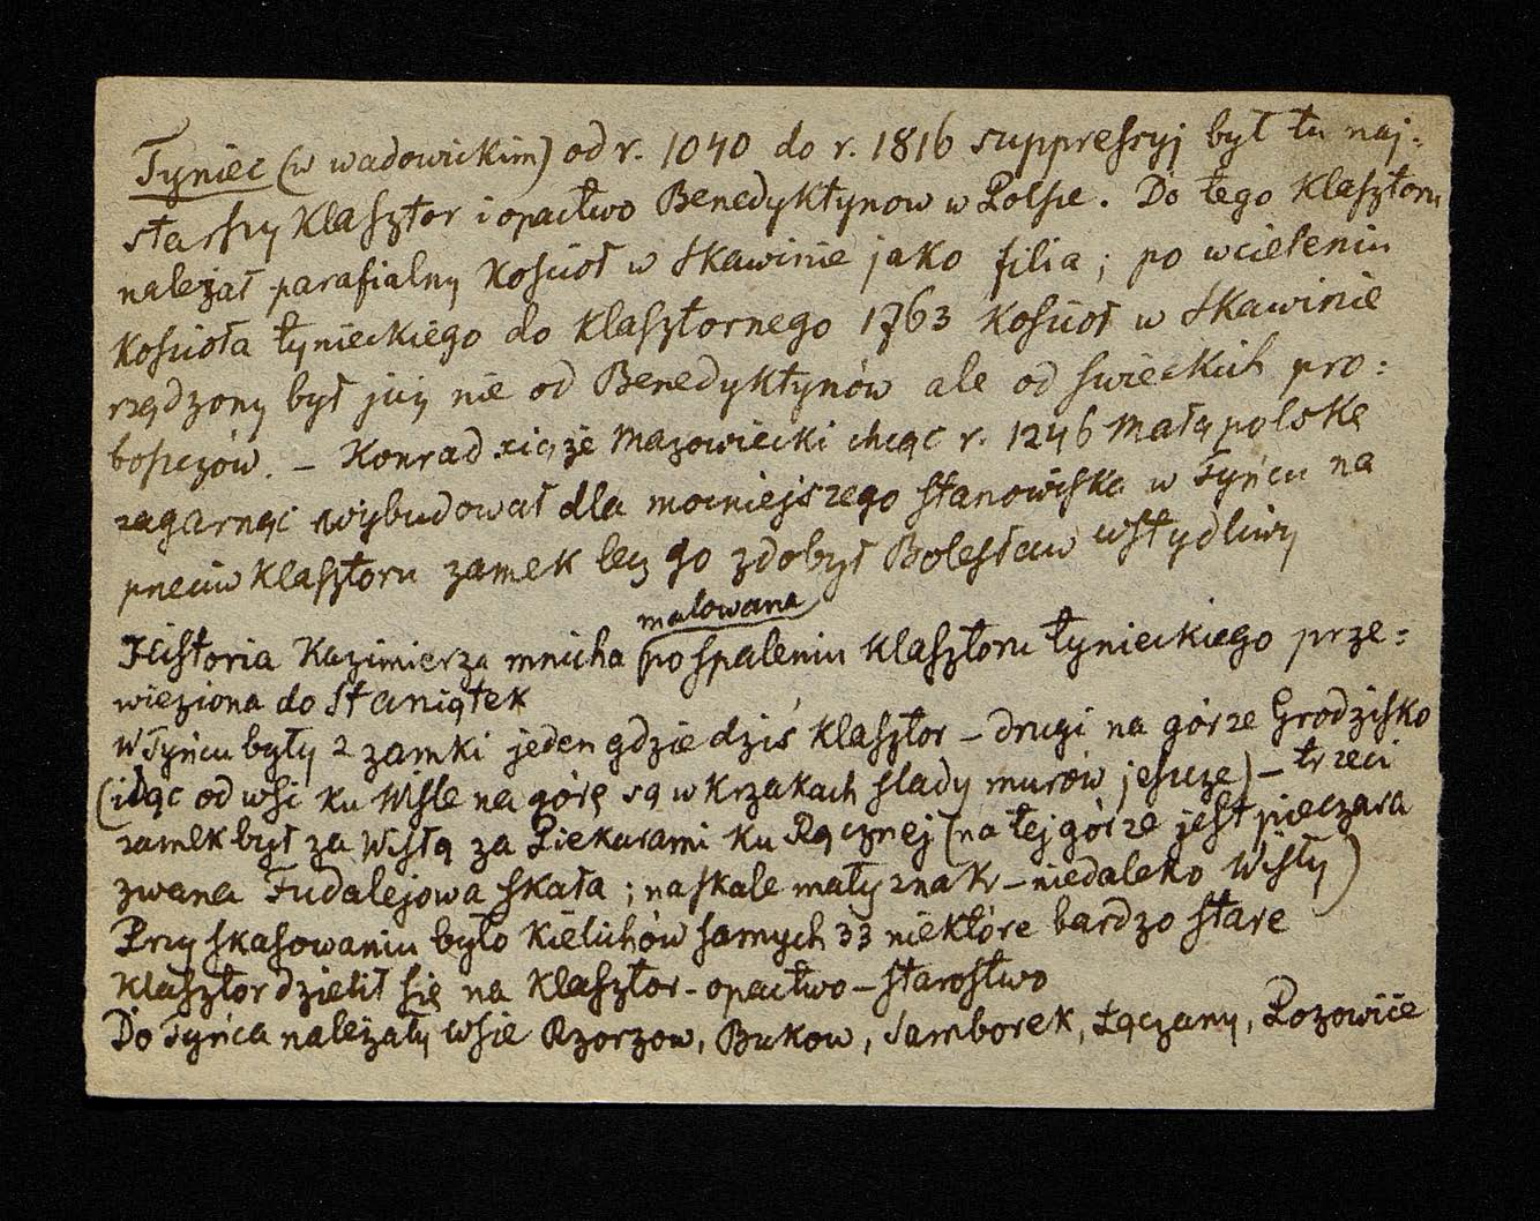 Tyniec (w wadowickim) od r. 1040 do r. 1816 suppressyj był tu naj-
starszy klasztor i opactwo Benedyktynow w Polsce. Do tego klasztoru
należał parafialny kościoł w Skawinie jako filia; po wcieleniu
kościoła tynieckiego do klasztornego 1763 kościoł w Skawinie
rządzony był już nie od Benedyktynów ale od swieckich pro-
boszczów. – Konrad xiąże Mazowiecki chcąc r. 1246 Małąpolskę
zagarnąc wybudował dla mocniejszego stanowiska w Tyńcu na
przeciw klasztoru zamek lecz go zdobył Bolesław wstydliwy
malowana
Historia Kazimierza mnicha po spaleniu klasztoru tynieckiego prze-
wieziona do Staniątek
W Tyńcu były 2 zamki jeden gdzie dziś klasztor – drugi na górze Grodzisko
(idąc od wsi ku Wisle na górę są w krzakach slady murów jeszcze) – trzeci
zamek był za Wisłą za Piekarami ku Rącznej (na tej górze jest pieczara
zwana Fudalejowa skała; na skale mały znak – niedaleko Wisły)
Przy skasowaniu było kielichów samych 33 niektóre bardzo stare
Klasztor dzielił się na klasztor – opactwo – starostwo
Do Tyńca należały wsie Rzorzow, Bukow, Samborek, Łączany, Pozowice